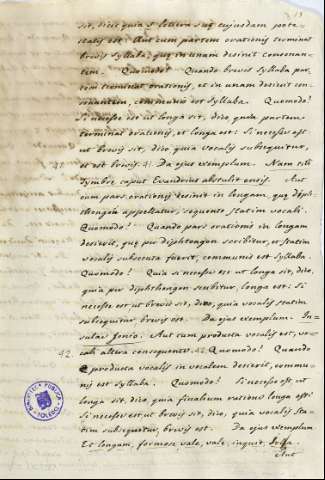 sit, dico quia s littera suę cujusdam pote-
statis est: Aut cum partem orationis terminat
brevis syllaba, quę in unam desinit consonan-
tem. Quomodo? Quando brevis syllaba par-
tem terminat orationis, et in unam desinit con-
sonantem, communis est syllaba. Quomodo?
Si necesse est ut longa sit, dico, quia partem
terminat orationis, et longa est: Si necesse est
ut brevis sit, dico quia vocalis subsequitur,
et est brevis 41. Da ejus exemplum. Nam tibi
Tymbre caput Evandrius abstulit ensis. Aut
cum pars orationis desinit in longam, quę diph-
thongus appellatur, sequente statim vocali.
Quomodo? Quando pars orationis in longam
desierit, quę per diphthongon scribitur, et statim
vocalis subsecuta fuerit, communis est syllaba.
Quomodo? Quia si necesse est ut longa sit, dico,
quia per diphthongon scribitur, longa est: Si
necesse est ut brevis sit, dico, quia vocalis statim
subsequitur, brevis est. Da ejus exemplum. In-
sulae Jonio. Aut cum producta vocalis est, vo-
42. cali altera consequente. 42 Quomodo? Quando
producta vocalis in vocalem desierit, commu-
nis est syllaba. Quomodo? Si necesse est ut
longa sit, dico, quia finalium ratione longa est:
Si necesse est ut brevis sit, dico, quia vocalis sta-
tim subsequitur, brevis est. Da ejus exemplum
Et longam, formose, vale, vale, inquit,
Aut
BIBLIOTECA PUBLICA
TOLEDO